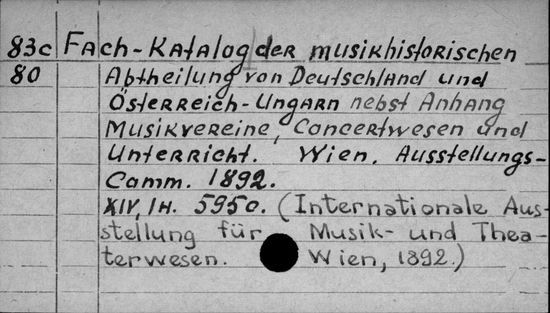 83c Fach-Katalog der musikhistorischen
80 Abtheilung von Deutschland und
Österreich-Ungarn nebst Anhang
Musikvereine, Concertwesen und
Unterricht. Wien, Ausstellungs-
Comm. 1892.
XIV, 1H. 5950. (Internationale Aus-
stellung für Musik- und Thea-
terwesen. Wien, 1892.)